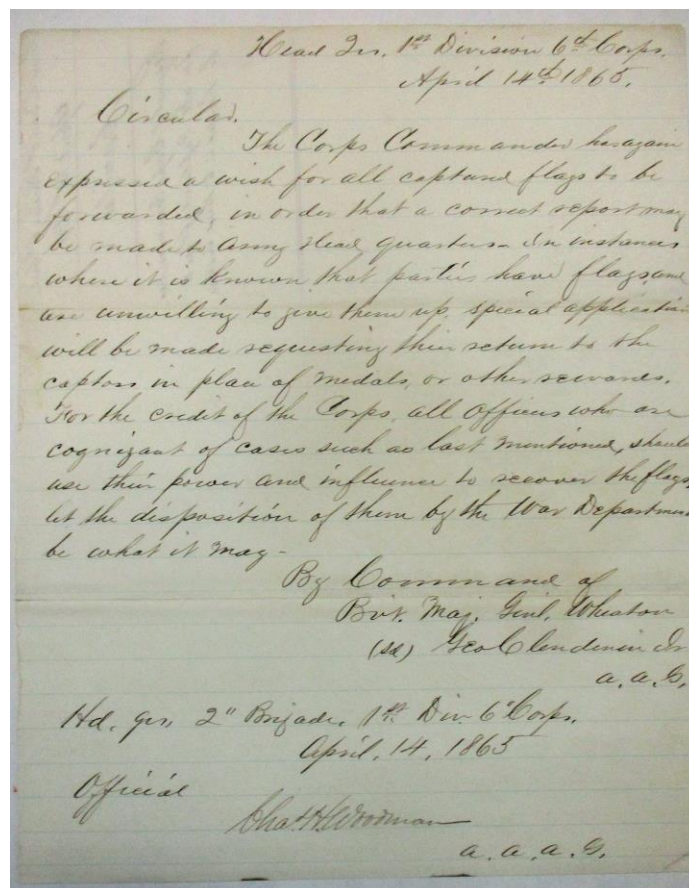 Head Qrs. 1st Division 6th Corps.
April 14th 1865.
Circular.
The Corps Commander has again
expressed a wish for all captured flags to be
forwarded, in order that a correct report may
be made to Army Head quarters - In instances
where it is known that parties have flags, and
are unwilling to give them up, special application
will be made requesting their return to the
captors in place of medals, or other rewards.
For the credit of the Corps, all officers who are
cognizant of cases such as last mentioned, should
use their power and influence to recover the flags,
let the disposition of them by the War Department
be what it may -
By Command of
Bvt. Maj. Genl. Wheaton
(sd) Geo Clendenin Jr
a. a. G.
Hd. qrs. 2" Brigade, 1st Div. 6" Corps.
April. 14, 1865
Official
Chas. H. Woodman
a. a. a. G.